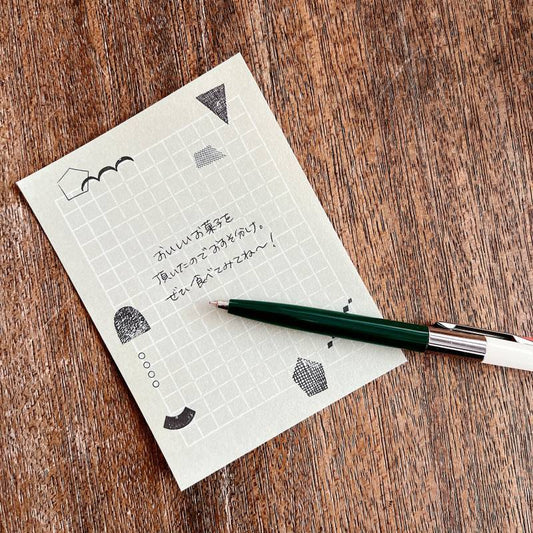 おいしいお菓子を
頂いたのでおすそ分け。
ぜひ食べてみてね〜!